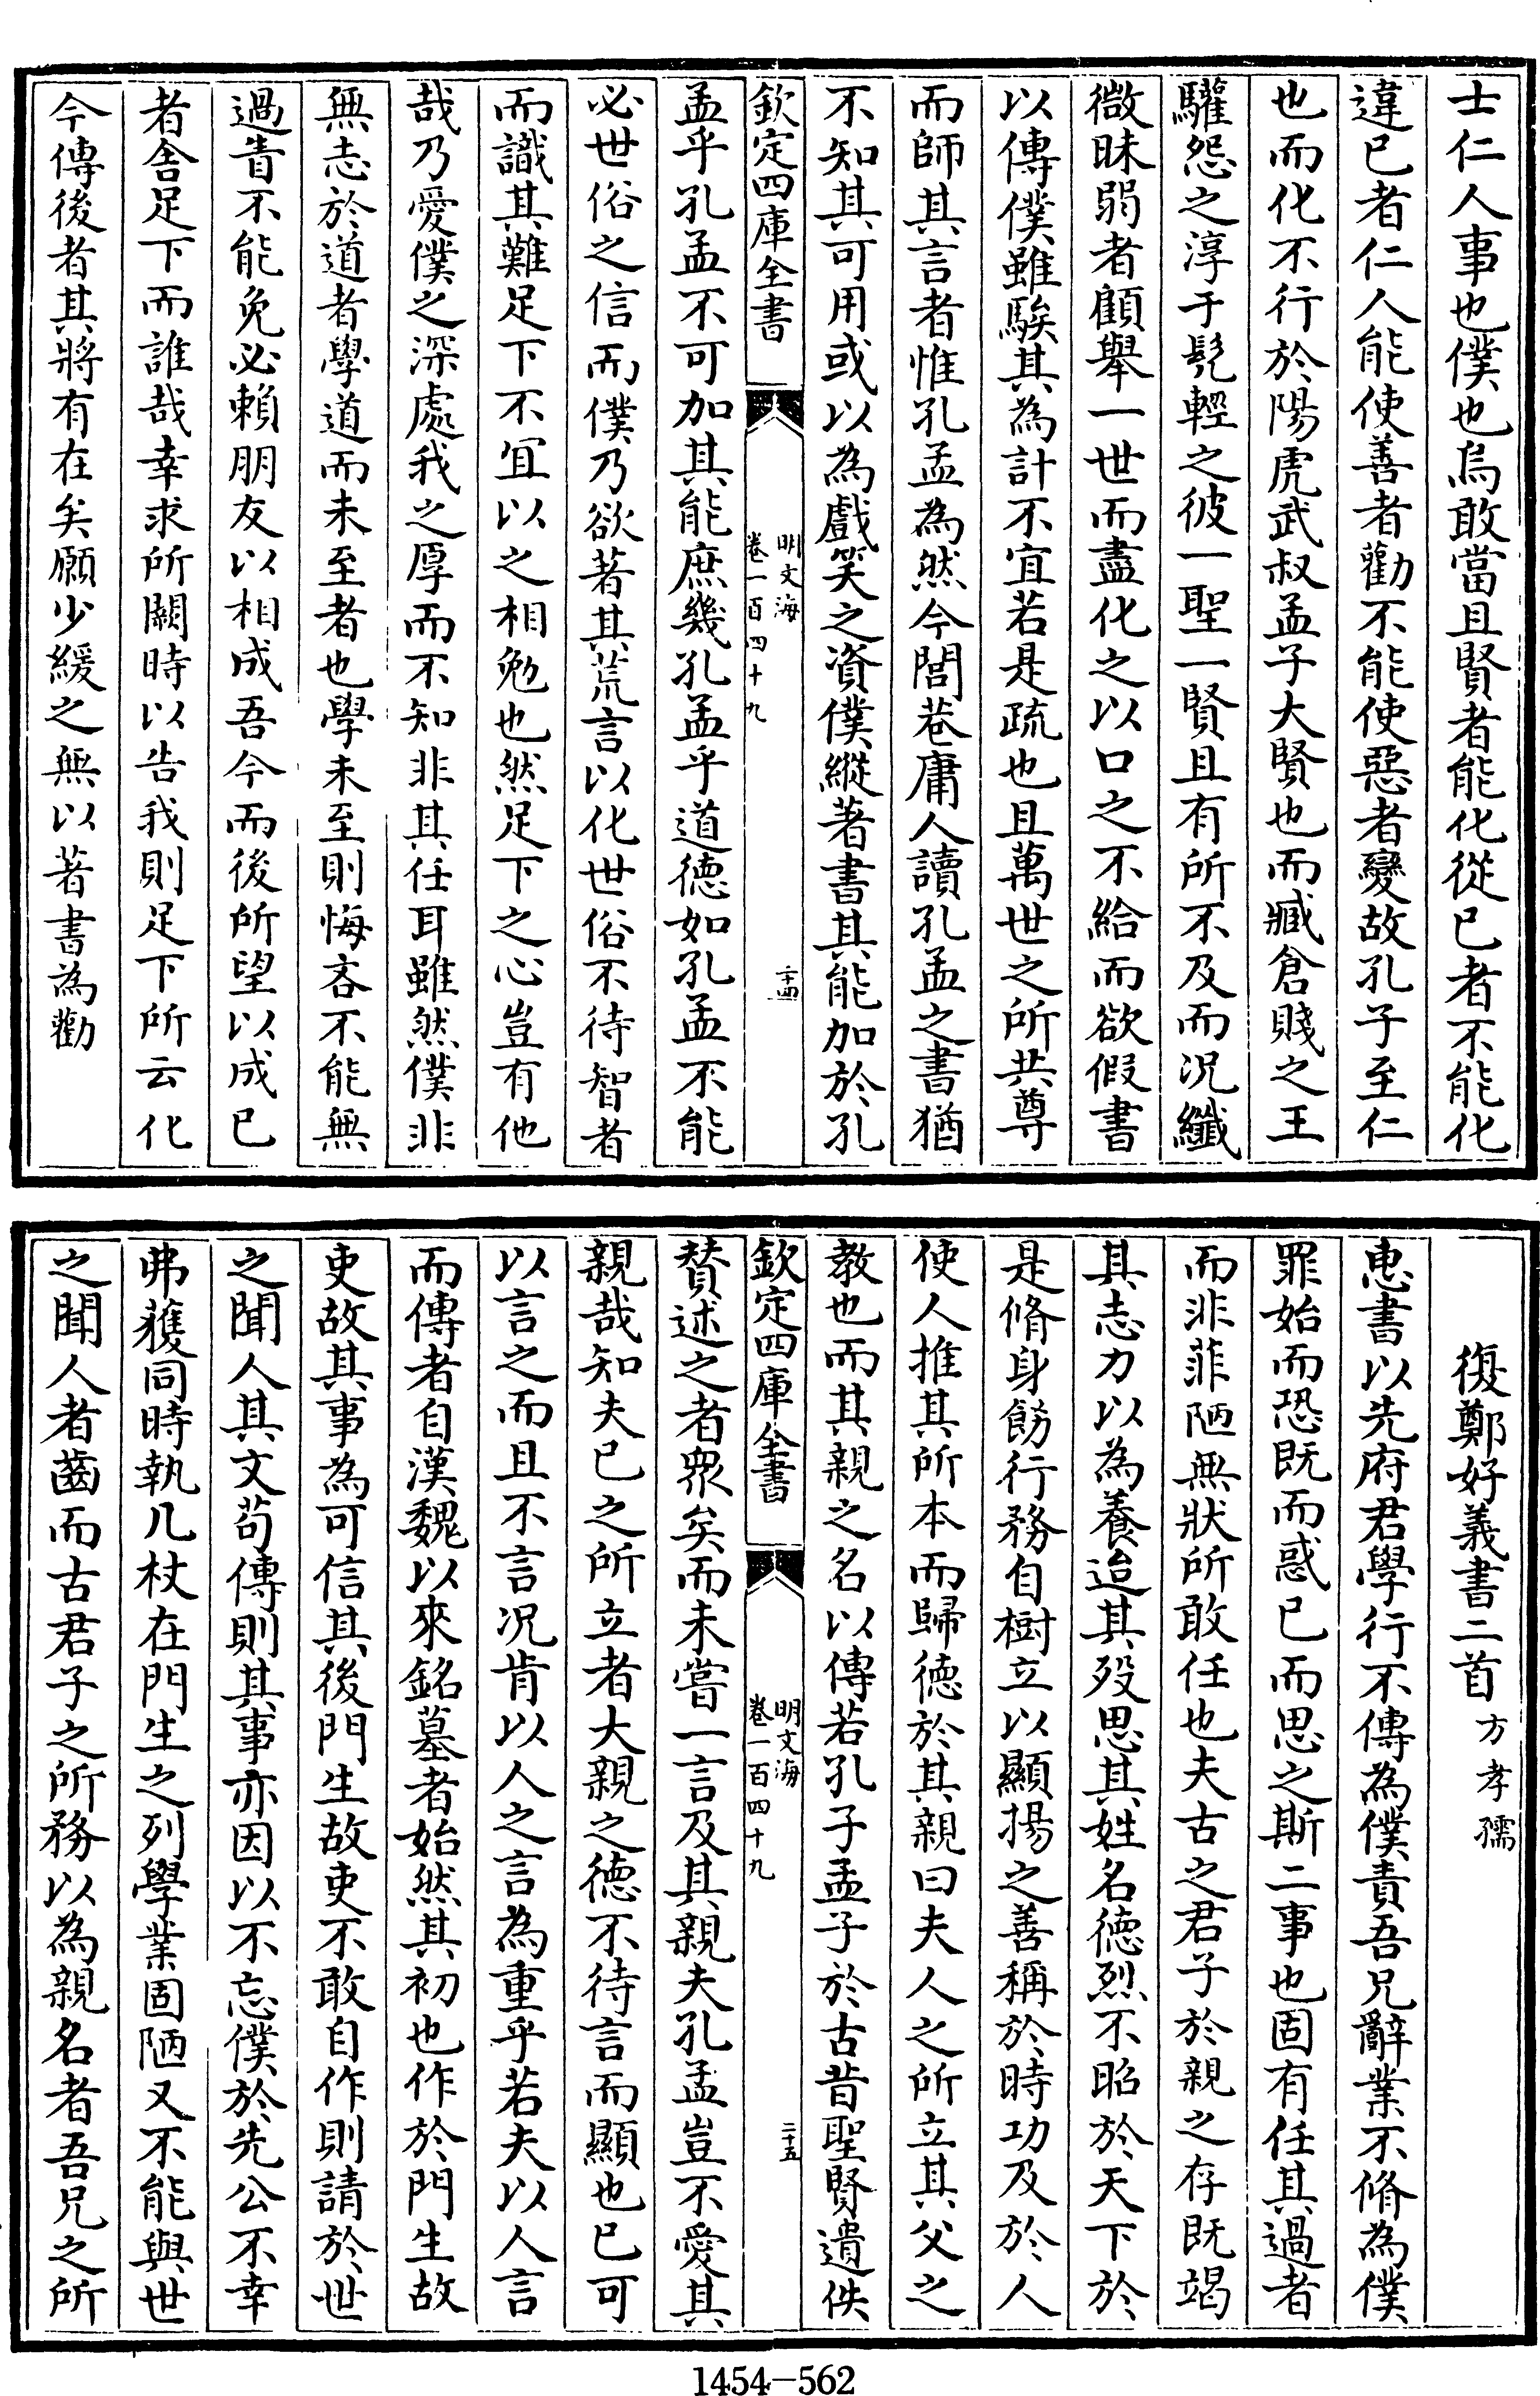 士仁人事也僕也烏敢當且賢者能化從已者不能化
違已者仁人能使善者勸不能使惡者變故孔子至仁
也而化不行於陽虎武叔孟子大賢也而臧倉賤之王
驩怨之淳于髡輕之彼一聖一賢且有所不及而況纖
微昧弱者顧舉一世而盡化之以口之不給而欲假書
以傳僕雖騃其為計不宜若是疏也且萬世之所共尊
而師其言者惟孔孟為然今閭巷庸人讀孔孟之書猶
不知其可用或以為戲笑之資僕縱著書其能加於孔
欽定四庫全書
明文海
卷一百四十九
二十四
孟乎孔孟不可加其能庶幾孔孟乎道德如孔孟不能
必世俗之信而僕乃欲著其荒言以化世俗不待智者
而識其難足下不宜以之相勉也然足下之心豈有他
哉乃愛僕之深處我之厚而不知非其任耳雖然僕非
無志於道者學道而未至者也學未至則悔吝不能無
過眚不能免必賴朋友以相成吾今而後所望以成已
者舍足下而誰哉幸求所闕時以告我則足下所云化
今傳後者其將有在矣願少緩之無以著書為勸
復鄭好義書二首 方孝孺
惠書以先府君學行不傳為僕責吾兄辭業不脩為僕
罪始而恐既而惑已而思之斯二事也固有任其過者
而非菲陋無狀所敢任也夫古之君子於親之存既竭
其志力以為養迨其歿思其姓名德烈不昭於天下於
是脩身飭行務自樹立以顯揚之善稱於時功及於人
使人推其所本而歸德於其親曰夫人之所立其父之
教也而其親之名以傳若孔子孟子於古昔聖賢遺佚
欽定四庫全書
明文海
卷一百四十九
二十五
贊述之者眾矣而未嘗一言及其親夫孔孟豈不愛其
親哉知夫已之所立者大親之德不待言而顯也已可
以言之而且不言況肯以人之言為重乎若夫以人言
而傳者自漢魏以來銘墓者始然其初也作於門生故
吏故其事為可信其後門生故吏不敢自作則請於世
之聞人其文苟傳則其事亦因以不忘僕於先公不幸
弗獲同時執几杖在門生之列學業固陋又不能與世
之聞人者齒而古君子之所務以為親名者吾兄之所
1454-562